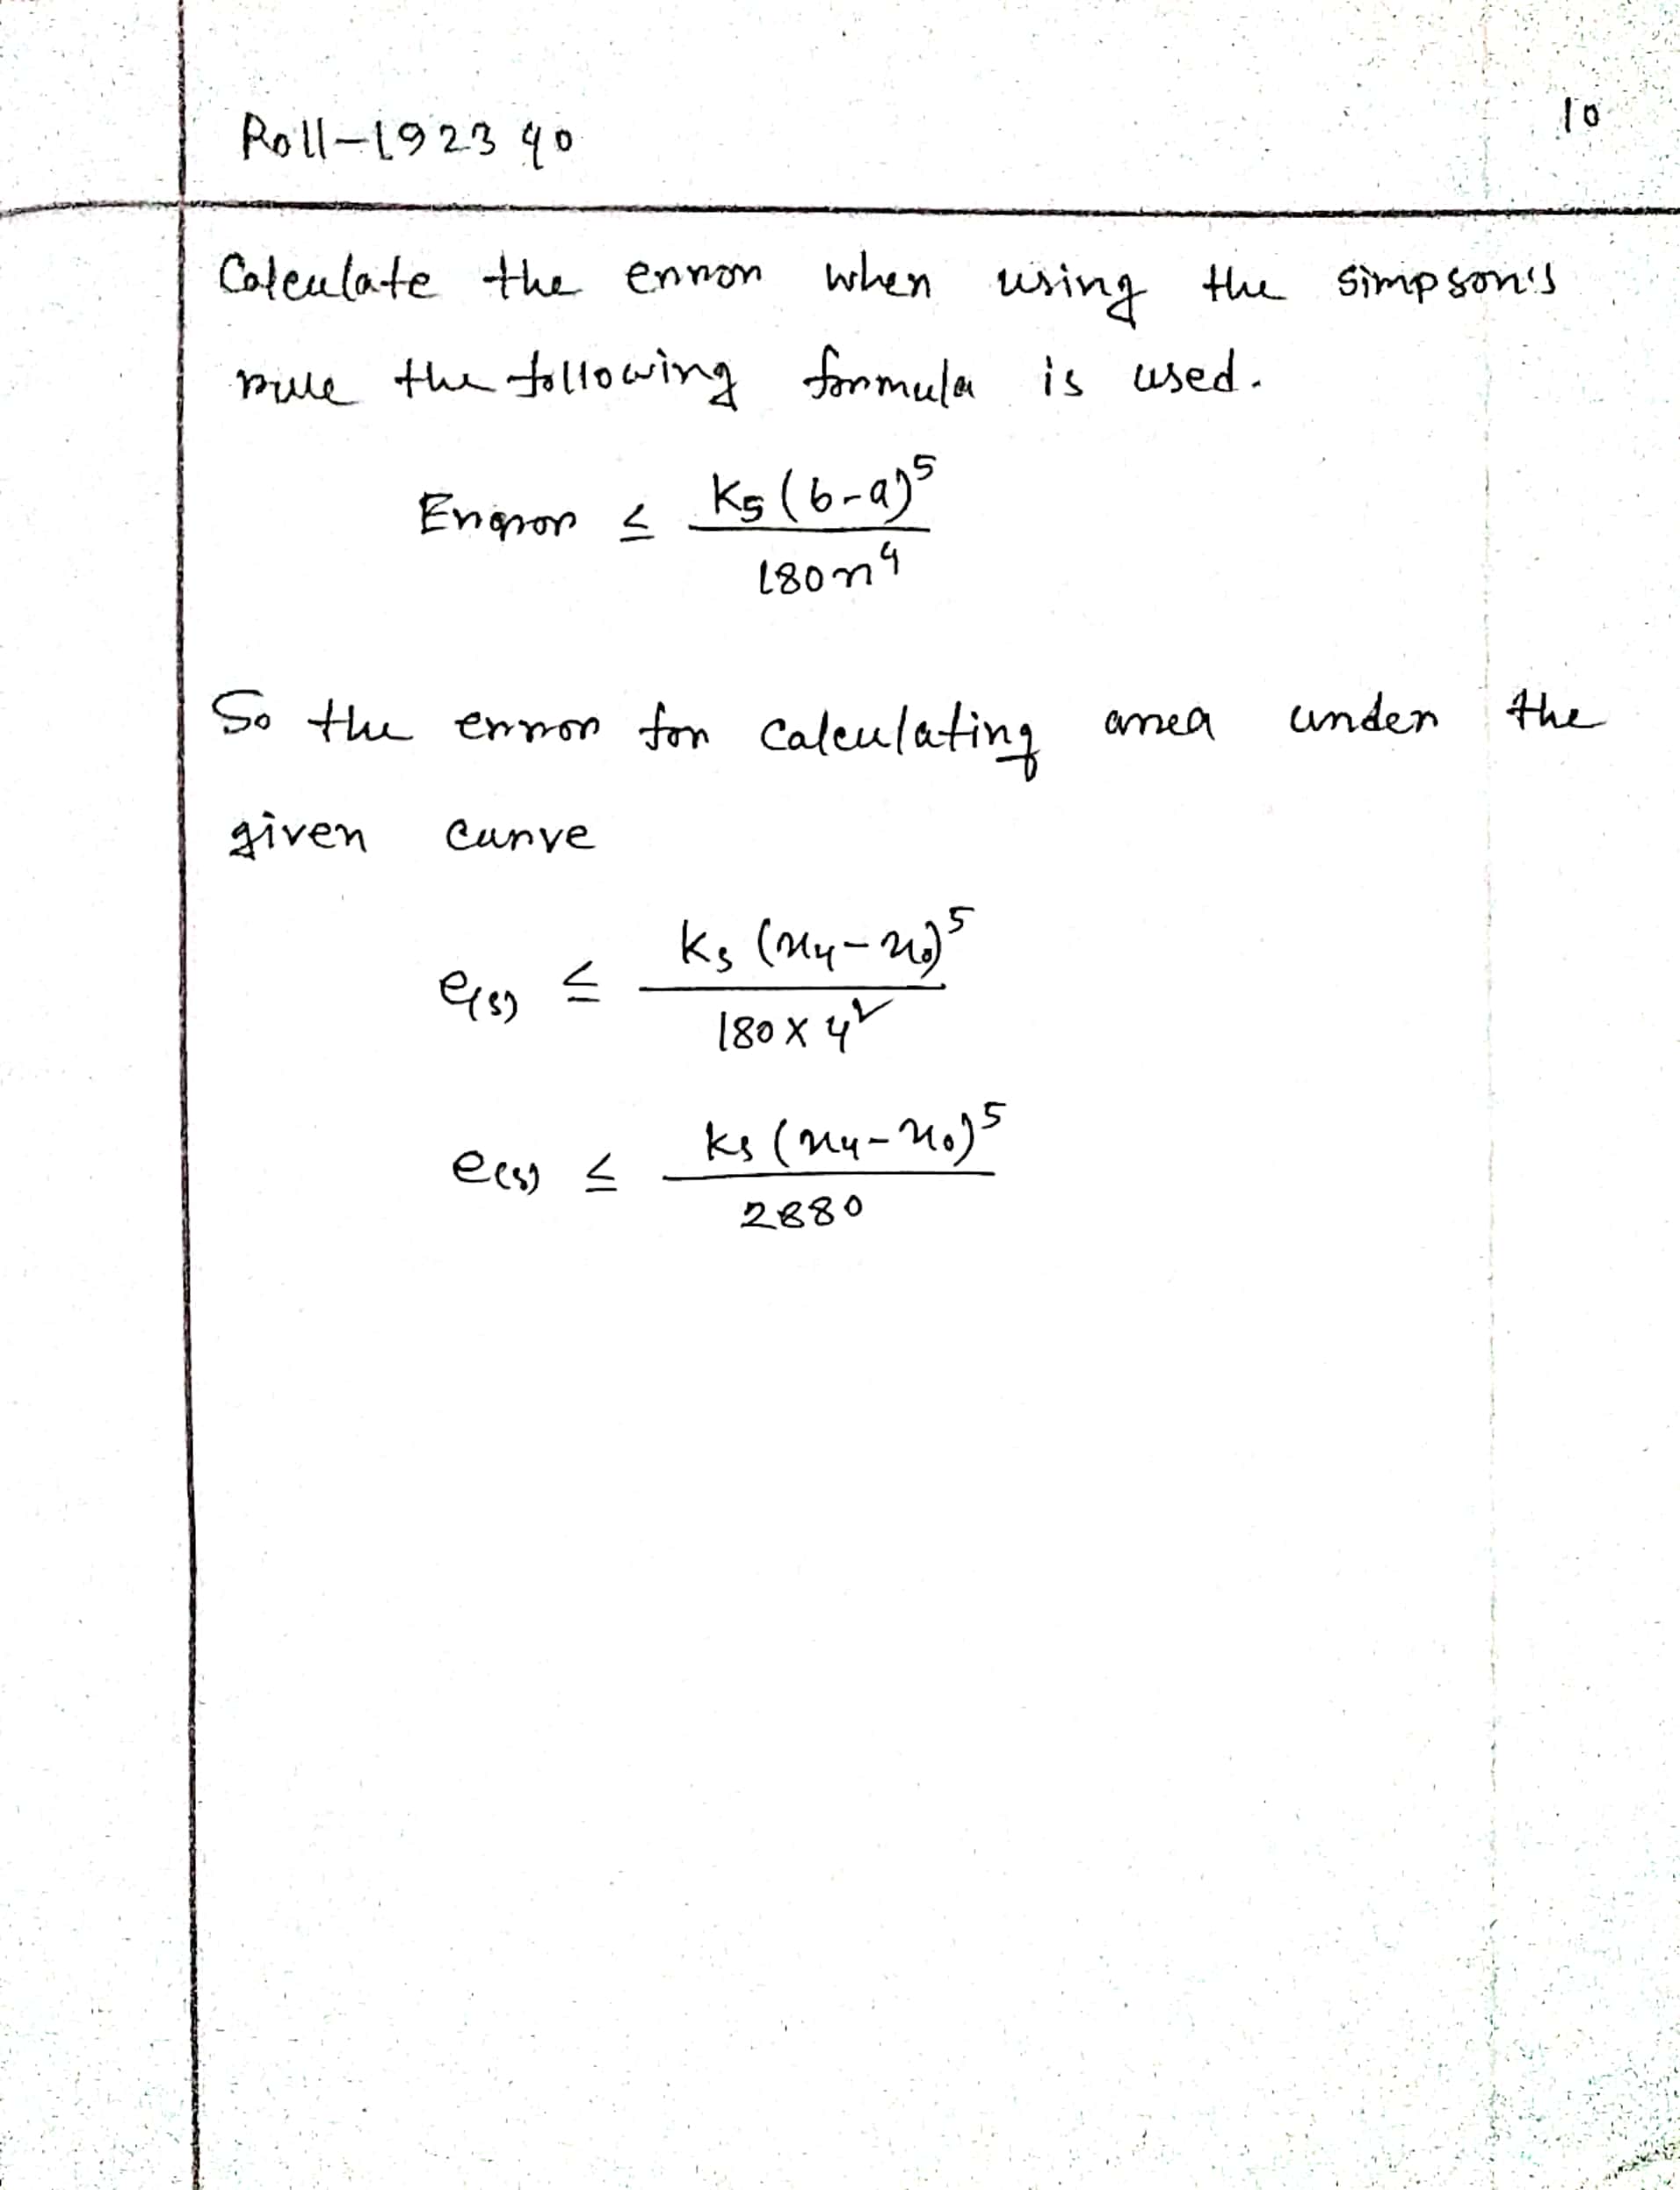 Roll-192340
10
Calculate the error when using the simpson's
rule the following formula is used.
Error ≤ K₅(b-a)⁵ / 180n⁴
So the error for calculating area under the
given curve
e₍ₛ₎ ≤ Kₛ(x₄-x₀)⁵ / 180×4²
e₍ₛ₎ ≤ Kₛ(x₄-x₀)⁵ / 2880